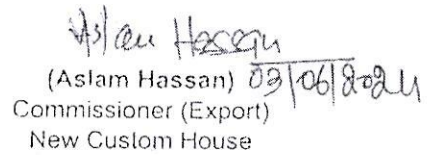 Aslam Hassan
(Aslam Hassan) 03/06/2024
Commissioner (Export)
New Custom House